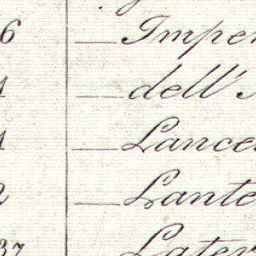 6 Imper
dell'
Lance
Lante
37 Later